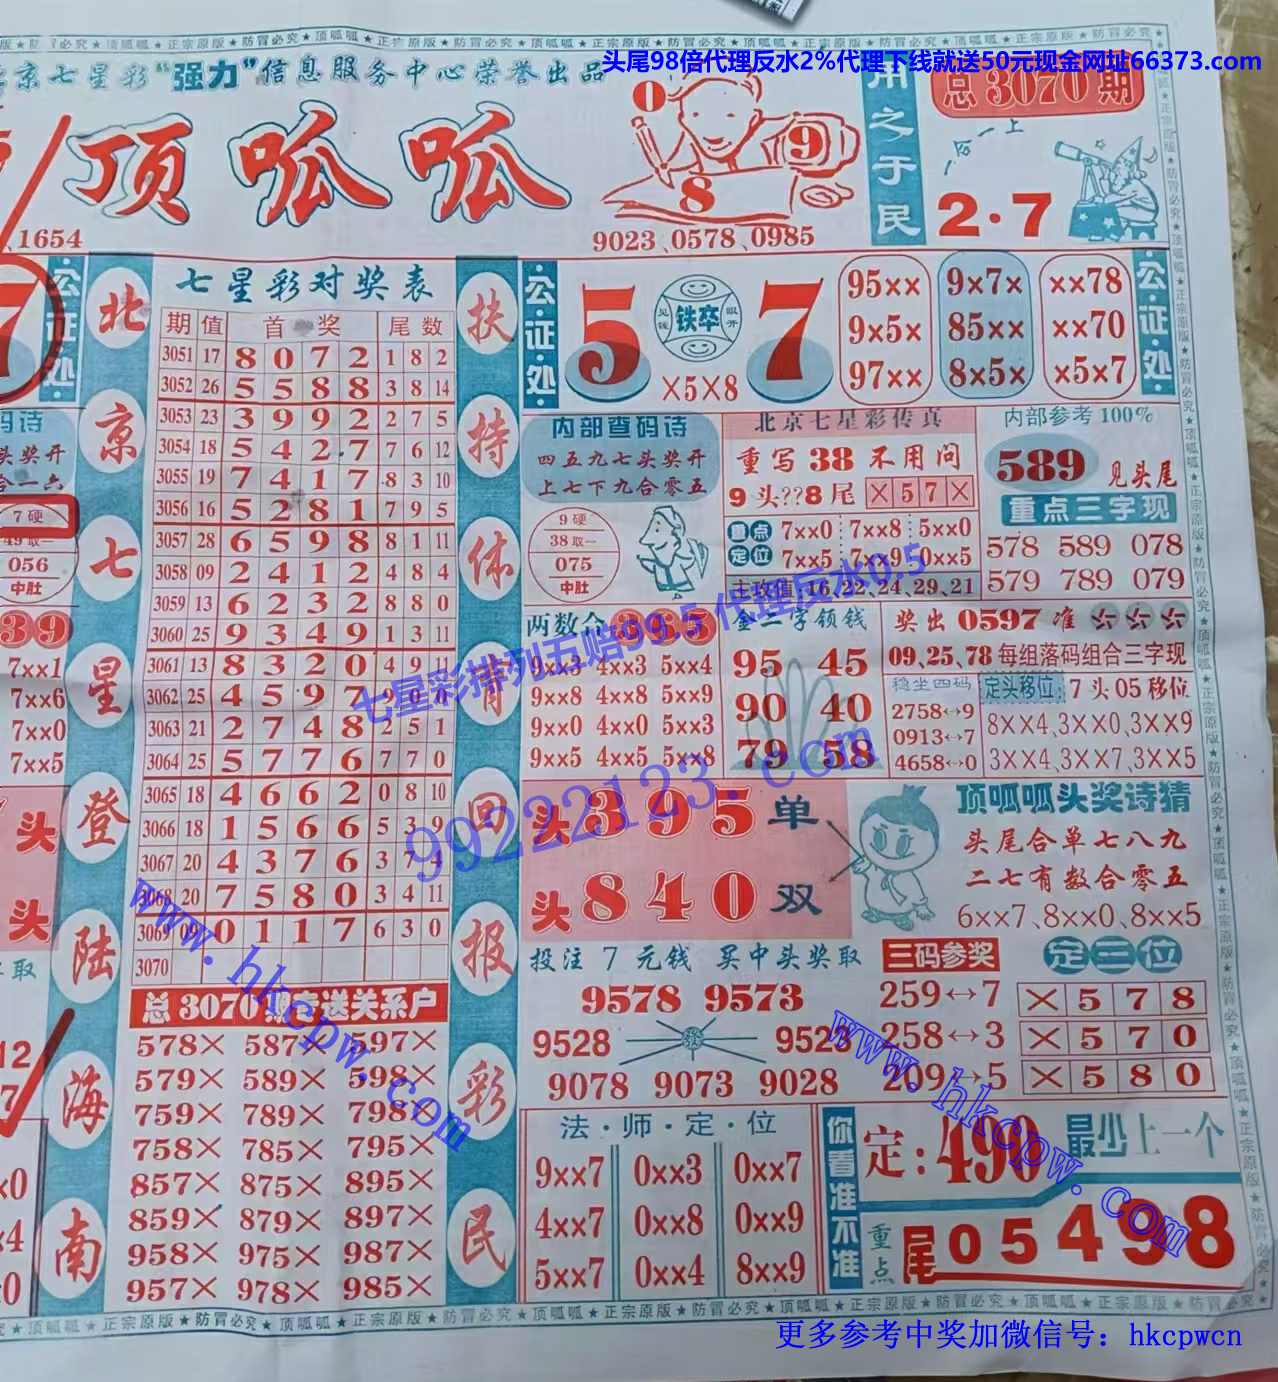 头尾98倍代理反水2%代理下线就送50元现金网址66373.com
京七星彩"强力"信息服务中心荣誉出品
顶呱呱
用之于民
总3070期
一合一上
2·7
0
9
8
1654
9023、0578、0985
公·证·处
北京七星登陆海南
七星彩对奖表
期 值 首 奖 尾数
3051 17 8 0 7 2 1 8 2
3052 26 5 5 8 8 3 8 14
3053 23 3 9 9 2 2 7 5
3054 18 5 4 2 7 7 6 12
3055 19 7 4 1 7 8 3 10
3056 16 5 2 8 1 7 9 5
3057 28 6 5 9 8 8 1 11
3058 09 2 4 1 2 4 8 4
3059 13 6 2 3 2 8 8 0
3060 25 9 3 4 9 1 3 11
3061 13 8 3 2 0 4 9
3062 25 4 5 9 7
3063 21 2 7 4 8 2 5 1
3064 25 5 7 7 6 7 7 0
3065 18 4 6 6 2 0 8 10
3066 18 1 5 6 6 5 3 9
3067 20 4 3 7 6 3 7 4
3068 20 7 5 8 0 3 4 11
3069 09 0 1 1 7 6 3 0
3070
总3070期 送关系户
578× 587× 597×
579× 589× 598×
759× 789× 798×
758× 785× 795×
857× 875× 895×
859× 879× 897×
958× 975× 987×
957× 978× 985×
扶持体育回报彩民
公·证·处
5 铁卒 7
见钱 眼开
×5×8
95×× 9×7× ××78
9×5× 85×× ××70
97×× 8×5× ×5×7
公·证·处
内部查码诗
四五九七头奖开
上七下九合零五
9硬
38取一
075
中肚
北京七星彩传真
重写38不用问
9头??8尾 ×57×
重点定位
7××0 7××8 5××0
7××5 7××9 0××5
主攻值 16,22,24,29,21
内部参考100%
589 见头尾
重点三字现
578 589 078
579 789 079
两数合
9××3 4××3 5××4
9××8 4××8 5××9
9××0 4××0 5××3
9××5 4××5 5××8
金二字领钱
95 45
90 40
79 58
奖出0597准
09,25,78每组落码组合三字现
稳坐四码
2758↔9
0913↔7
4658↔0
定头移位 7头05移位
8××4,3××0,3××9
3××4,3××7,3××5
头395单
头840双
顶呱呱头奖诗猜
头尾合单七八九
二七有数合零五
6××7、8××0、8××5
投注7元钱 买中头奖取
9578 9573
9528 9523
9078 9073 9028
三码参奖
259↔7
258↔3
209↔5
定三位
×578
×570
×580
法·师·定·位
9××7 0××3 0××7
4××7 0××8 0××9
5××7 0××4 8××9
你看准不准
定:490 最少上一个
重点 尾05498
码诗
头奖开
7硬
49取一
056
中肚
39
7××1
7××6
7××0
7××5
头
头
取
七星彩排列五赔99.5代理反水0.5
99222123.com
www.hkcpw.com
www.hkcpw.com
★顶呱呱★正宗原版★防冒必究★
更多参考中奖加微信号：hkcpwcn